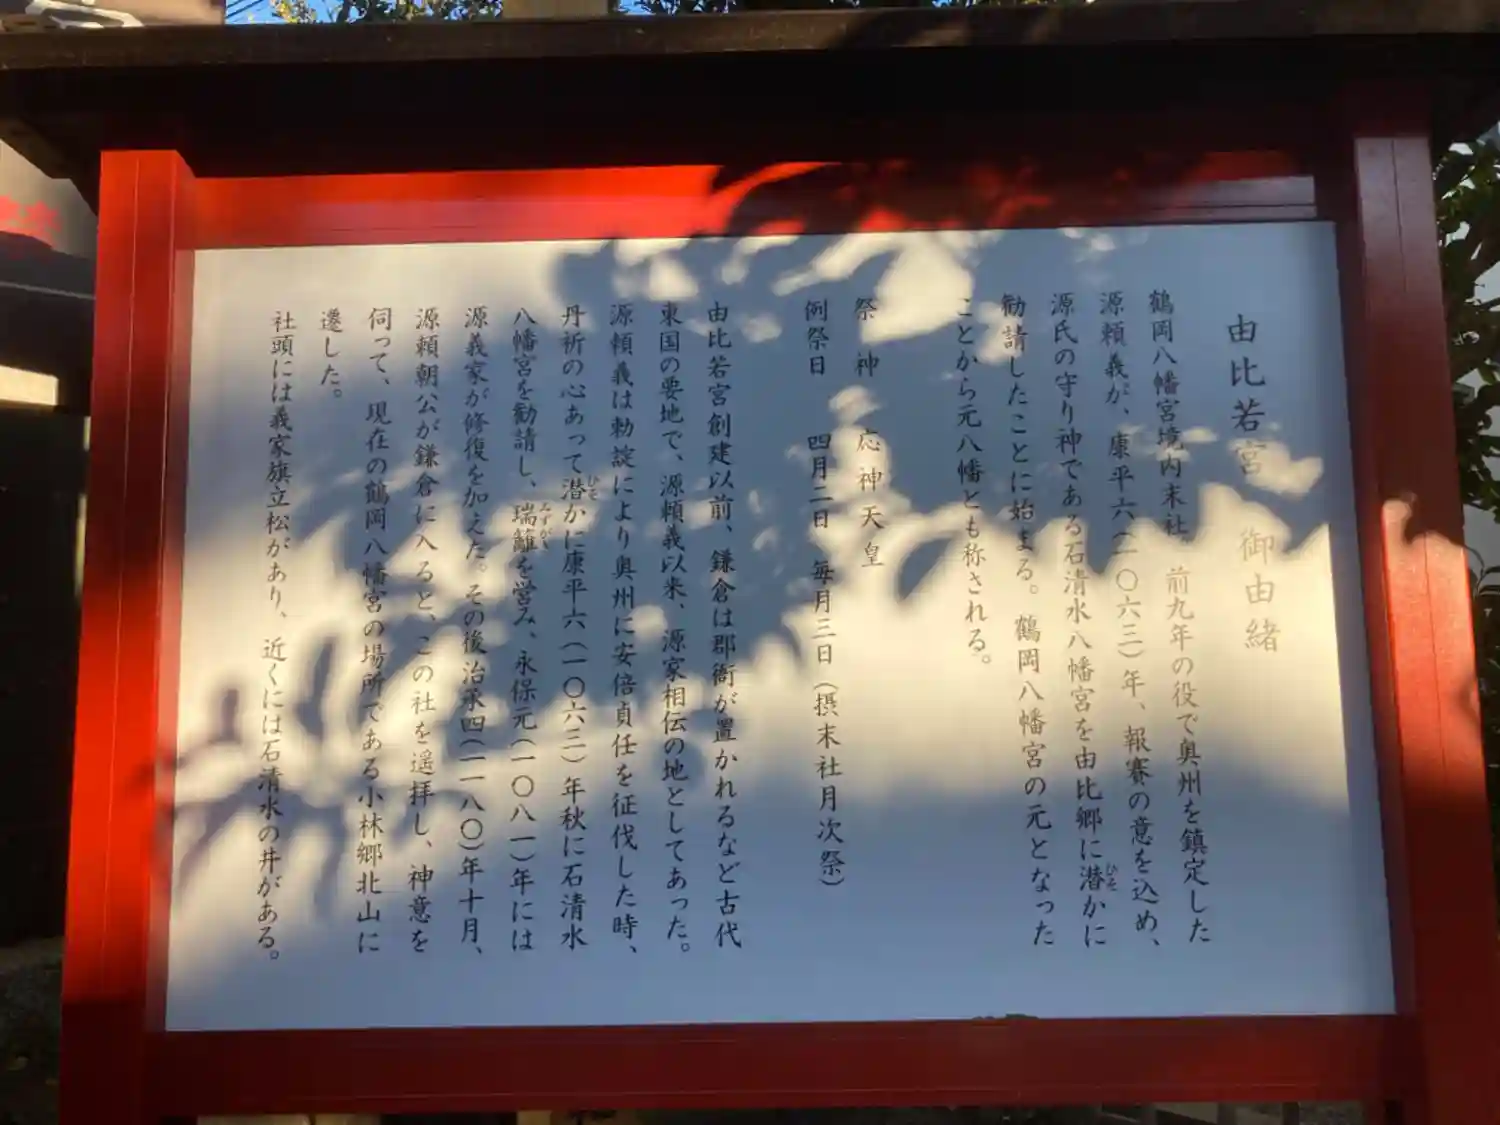 由比若宮 御由緒
鶴岡八幡宮境内末社。前九年の役で奥州を鎮定した
源頼義が、康平六(一〇六三)年、報賽の意を込め、
源氏の守り神である石清水八幡宮を由比郷に潜かに
勧請したことに始まる。鶴岡八幡宮の元となった
ことから元八幡とも称される。
祭神 応神天皇
例祭日 四月二日 毎月三日(摂末社月次祭)
由比若宮創建以前、鎌倉は郡衙が置かれるなど古代
東国の要地で、源頼義以来、源家相伝の地としてあった。
源頼義は勅諚により奥州に安倍貞任を征伐した時、
丹祈の心あって潜かに康平六(一〇六三)年秋に石清水
八幡宮を勧請し、瑞籬を営み、永保元(一〇八一)年には
源義家が修復を加えた。その後治承四(一一八〇)年十月、
源頼朝公が鎌倉に入ると、この社を遥拝し、神意を
伺って、現在の鶴岡八幡宮の場所である小林郷北山に
遷した。
社頭には義家旗立松があり、近くには石清水の井がある。